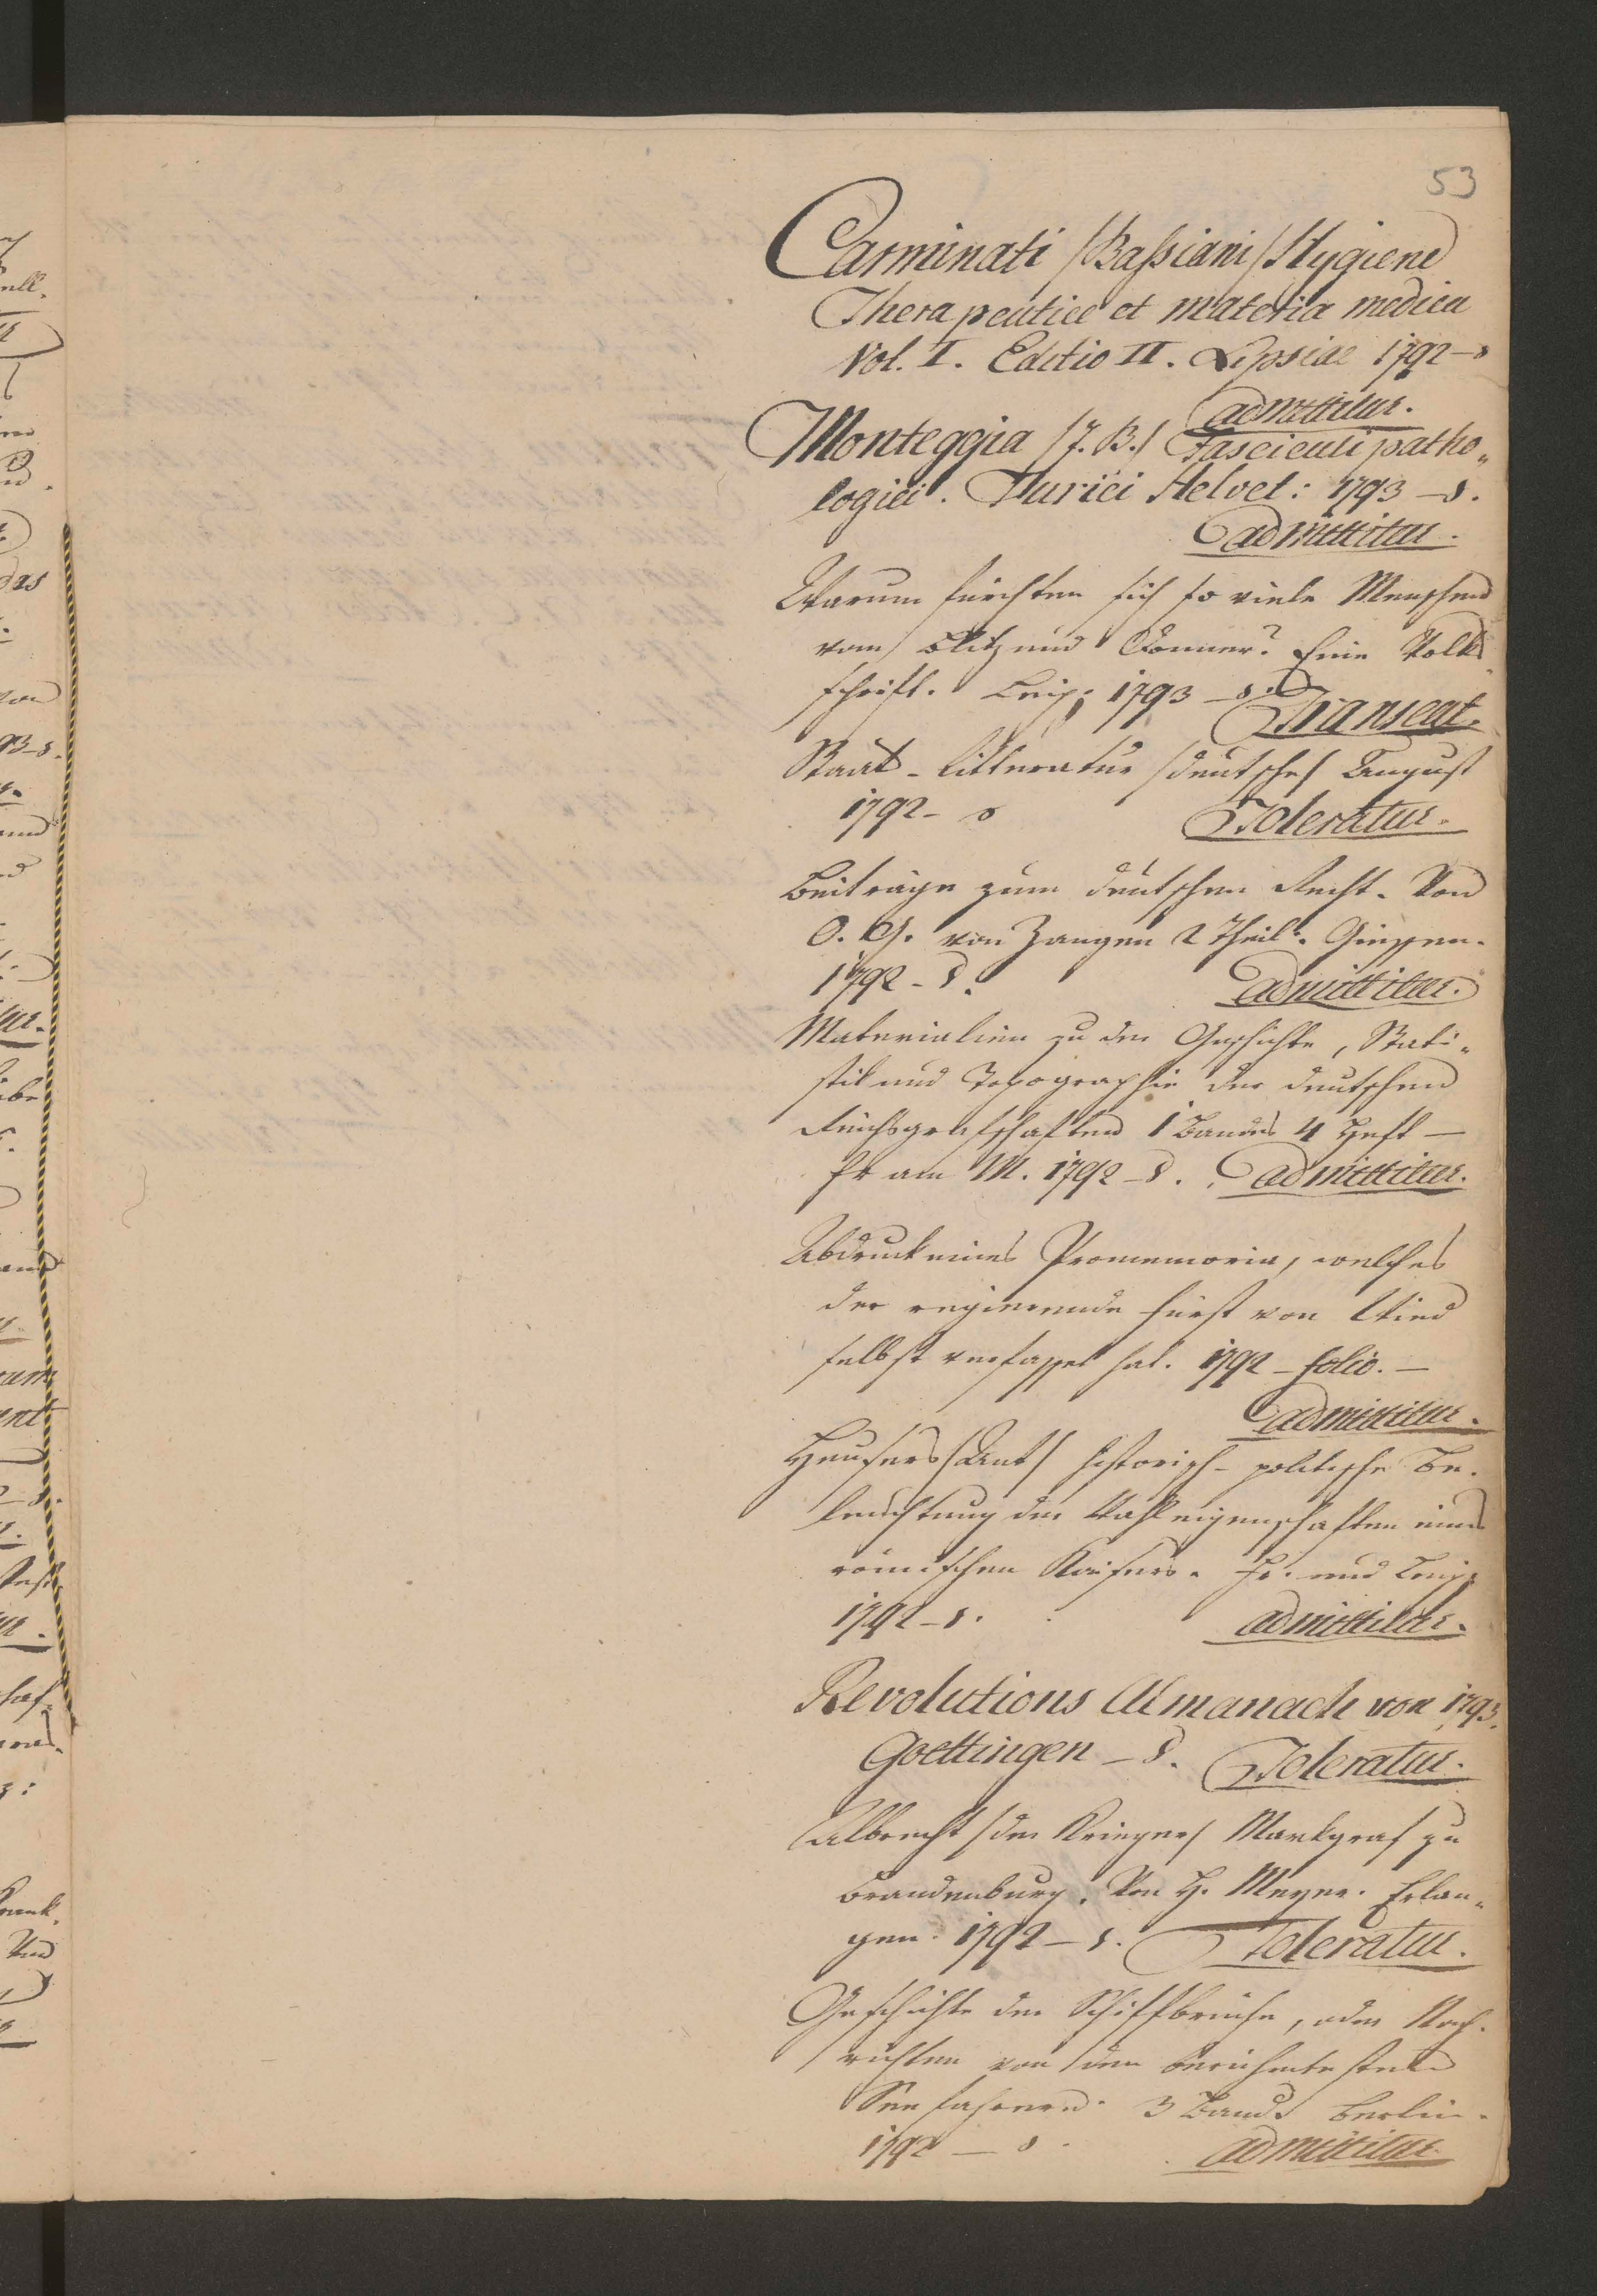 53
Carminati /Bassiani/ Hygiene
Therapeutice et materia medica
Vol. I. Editio II. Lipsiae 1792 - 8
admittitur.
Monteggia /J. B./ Fasciculi patho„
logici. Turici Helvet: 1793 - 8.
admittitur.
Warum fürchten sich so viele Menschen
vom Blitz und Donner? Eine Volks
schrift. Leip: 1793 - 8.
Transeat.
Staats-Litteratur /deutsche/ August
1792 - 8
Toleratur.
Beiträge zum deutschen Recht. Von
O. G. von Zangen 2 Theil. Giessen.
1792 - 8.
admittitur.
Materialien zu der Geschichte, Stati„
stik und Topographie der deutschen
Reichsgrafschaften 1 Bandes 4 Heft —
Fr am M. 1792 - 8. admittitur.
Abdruck eines Promemoria, welches
der regierende Fürst von Wied
selbst verfasset hat. 1792 - folio. —
admittitur.
Heusers /Ant/ historisch-politische Be„
leuchtung der Wahleigenschaften eines
römischen Kaisers. Fr. und Leip:
1792 - 8.
admittitur.
Revolutions Almanach von 1793.
Goettingen - 8. Toleratur.
Albrecht /der Krieger/ Markgraf zu
Brandenburg. Von H. Meyer. Erlan„
gen. 1792 - 8. Toleratur.
Geschichte der Schiffbrüche, oder Nach„
richten von den berühmtesten
Seefahrern. 3 Band. Berlin.
1792 — 8.
admittitur